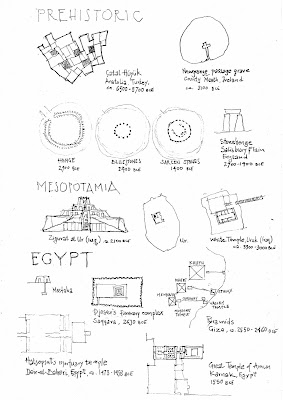 PREHISTORIC
Çatal Hüyük
Anatolia, Turkey
ca. 6500-5700 BCE
Newgrange passage grave
County Meath, Ireland
ca. 3100 BCE
HENGE
2900 BCE
BLUESTONES
2900 BCE
SARSEN STONES
1400 BCE
Stonehenge
Salisbury Plain
England
2900-1400 BCE
MESOPOTAMIA
Ziggurat at Ur (Iraq)
Ur.
White Temple, Uruk (Iraq)
EGYPT
Mastaba
Djoser's funerary complex
Saqqara, 2630 BCE
KHUFU
VALLEY
TEMPLE
Pyramids
Giza, ca. 2550-2460 BCE
Hatshepsut's mortuary temple
Deir-el-Bahari, Egypt, ca. 1473-1458 BCE
Great Temple of Amun
Karnak, Egypt
1550 BCE